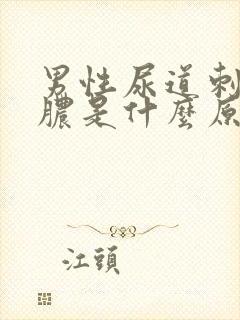 男性尿道刺
膿是什麼原
江頭